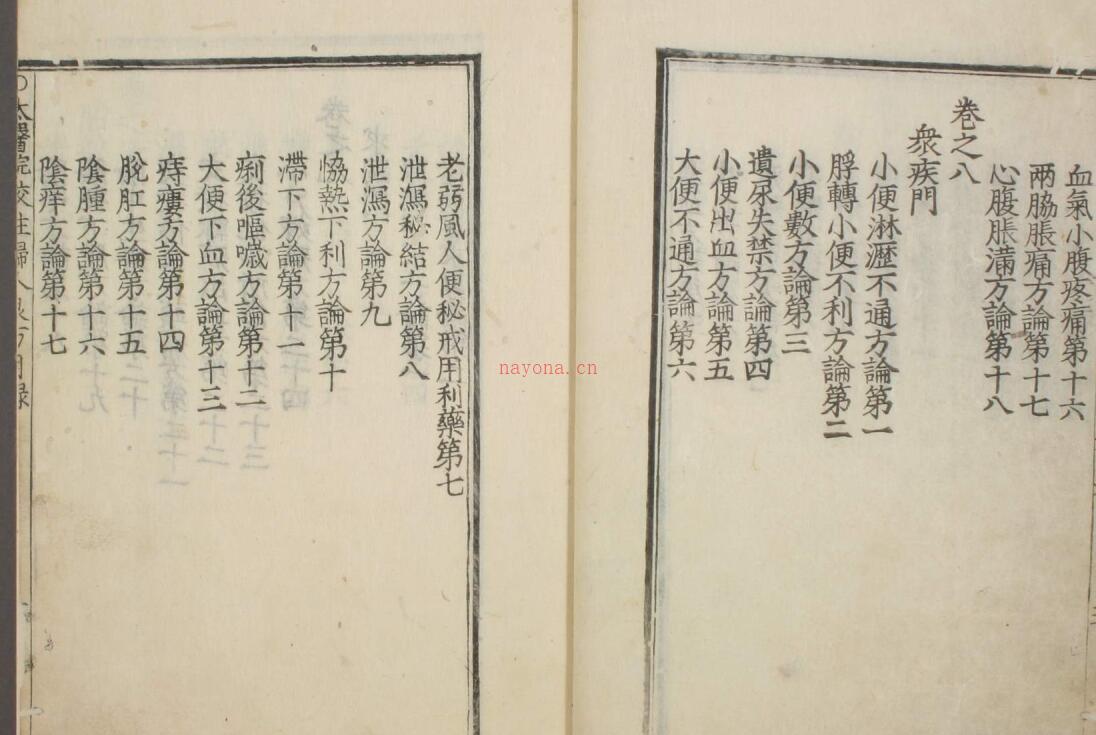 血氣小腹疼痛第十六
兩脇脹痛方論第十七
心腹脹滿方論第十八
卷之八
衆疾門
小便淋瀝不通方論第一
脬轉小便不利方論第二
小便數方論第三
遺尿失禁方論第四
小便出血方論第五
大便不通方論第六
老弱風人便秘戒用利藥第七
泄瀉秘結方論第八
泄瀉方論第九
恊熱下利方論第十
滯下方論第十一
痢後嘔噦方論第十二
大便下血方論第十三
痔瘻方論第十四
脫肛方論第十五
陰腫方論第十六
陰痒方論第十七
太醫院校註婦人良方目錄
nayona.cn